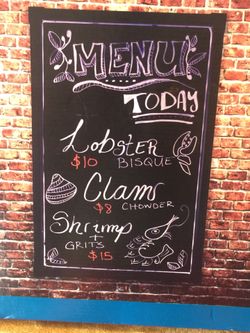 MENU
TODAY
Lobster
$10 BISQUE
Clams
$8 CHOWDER
Shrimp
+
GRITS
$15